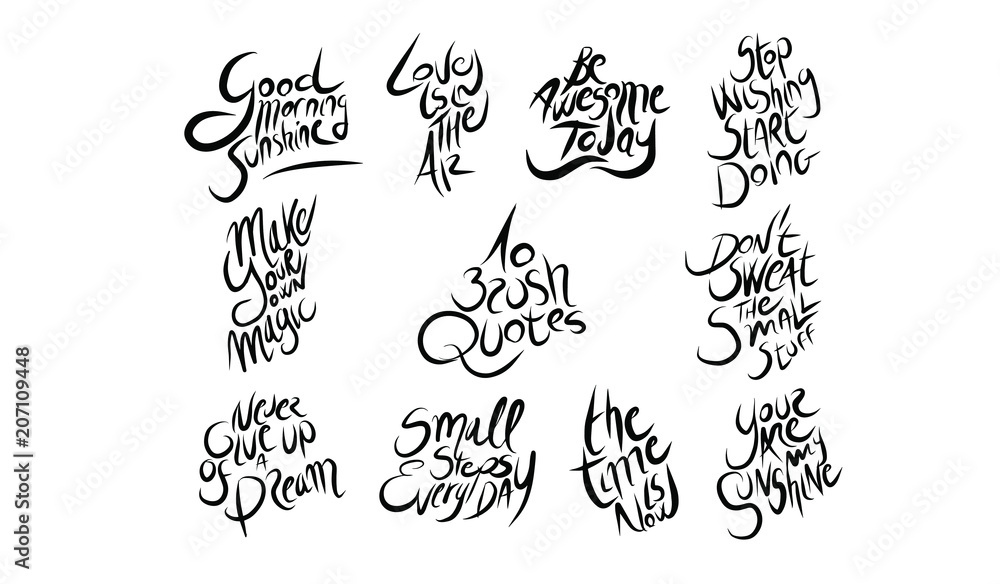 Good
morning
Sunshine
Love
is
THE
AiR
Be
AWesome
Today
Stop
WiShing
START
Doing
Make
YOUR
own
Magic
10
Brush
Quotes
DON'T
SWEAT
THE
SMALL
STUFF
Never
Give up
OF A
Dream
Small
Steps
Every DAY
the
time
is
Now
Your
Are
my
SUNSHiNE
Adobe Stock | #207109448